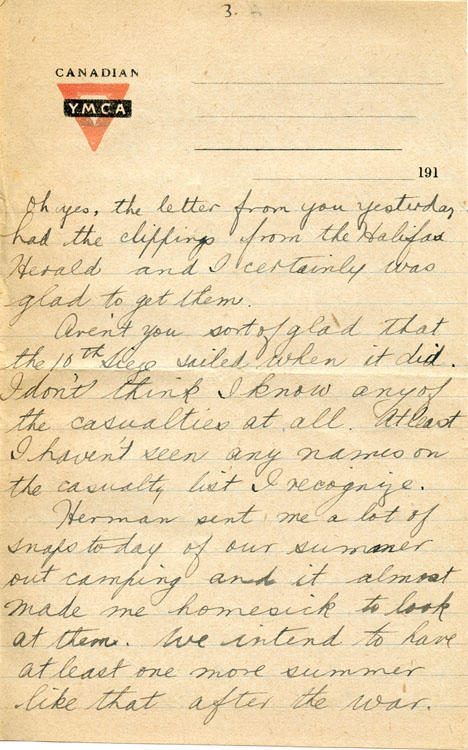 3.
CANADIAN
YMCA
191
Oh yes, the letter from you yesterday
had the clippings from the Halifax
Herald and I certainly was
glad to get them.
Aren't you sort of glad that
the 10th Siege sailed when it did.
I don't think I know any of
the casualties at all. At least
I haven't seen any names on
the casualty list I recognize.
Herman sent me a lot of
snaps today of our summer
out camping and it almost
made me homesick to look
at them. We intend to have
at least one more summer
like that after the war.